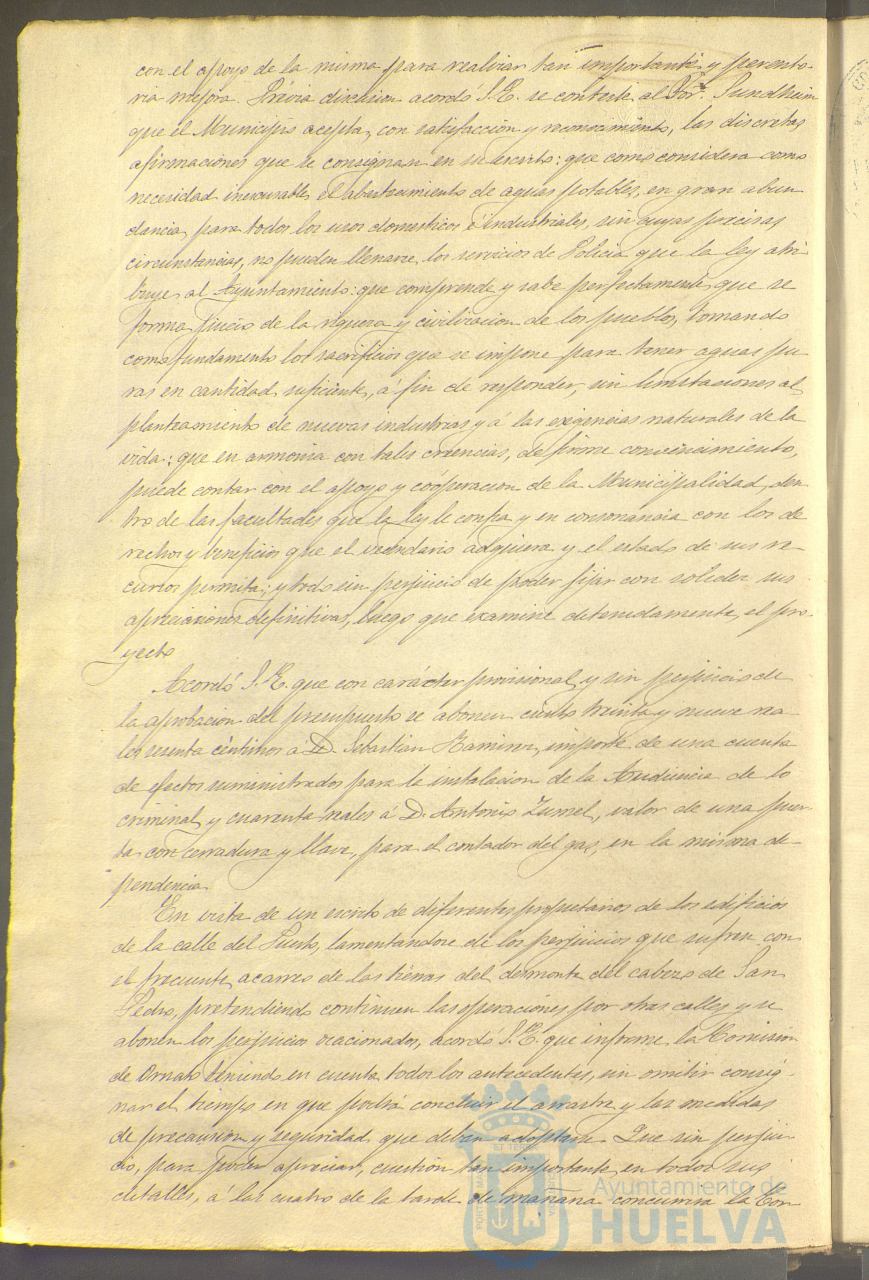 con el apoyo de la misma para realizar tan importante y perento-
ria mejora. Prévia discusion acordó S.E. se conteste al Sor. Sundheim
que el Municipio acepta, con satisfacción y reconocimiento, las discretas
afirmaciones que se consignan en su escrito: que como considera como
necesidad inexcusable, el abastecimiento de aguas potables, en gran abun
dancia, para todos los usos domesticos é industriales, sin cuyas precisas
circunstancias, no pueden llenarse los servicios de Policia que la ley atri
buye al Ayuntamiento: que comprende y sabe perfectamente que se
forma juicio de la riqueza y civilizacion de los pueblos, tomando
como fundamento los sacrificios que se impone para tener aguas pu
ras en cantidad suficiente, á fin de responder, sin limitaciones al
planteamiento de nuevas industrias y á las exigencias naturales de la
vida: que en armonia con tales creencias, de firme convencimiento,
puede contar con el apoyo y cooperacion de la Municipalidad, den
tro de las facultades que la ley le confia y en consonancia con los de
rechos y beneficios que el vecindario adquiera y el estado de sus re-
cursos permita; y todo sin perjuicio de poder fijar con solidez sus
apreciaciones definitivas, luego que examine detenidamente el pro-
yecto
Acordó S.E. que con carácter provisional y sin perjuicio de
la aprobacion del presupuesto se abonen ciento treinta y nueve rea
les sesenta céntimos á D. Sebastian Ramirez, importe de una cuenta
de efectos suministrados para la instalacion de la Audiencia de lo
criminal y cuarenta reales á D. Antonio Zumel, valor de una puer-
ta con cerradura y llave, para el contador del gas, en la misma de-
pendencia
En vista de un escrito de diferentes propietarios de los edificios
de la calle del Puerto, lamentandose de los perjuicios que sufren con
el frecuente acarreo de las tierras del desmonte del cabezo de San
Pedro, pretendiendo continuen las operaciones por otras calles y se
abonen los perjuicios ocacionados, acordó S.E. que informe la Comision
de Ornato teniendo en cuenta todos los antecedentes, sin omitir consig-
nar el tiempo en que podrá concluir el arrastre y las medidas
de precaucion y seguridad que deban adoptarse. Que sin perjui-
cio, para poder apreciar, cuestion tan importante en todos sus
detalles, á las cuatro de la tarde de mañana concurrira la Com
Ayuntamiento de
HUELVA